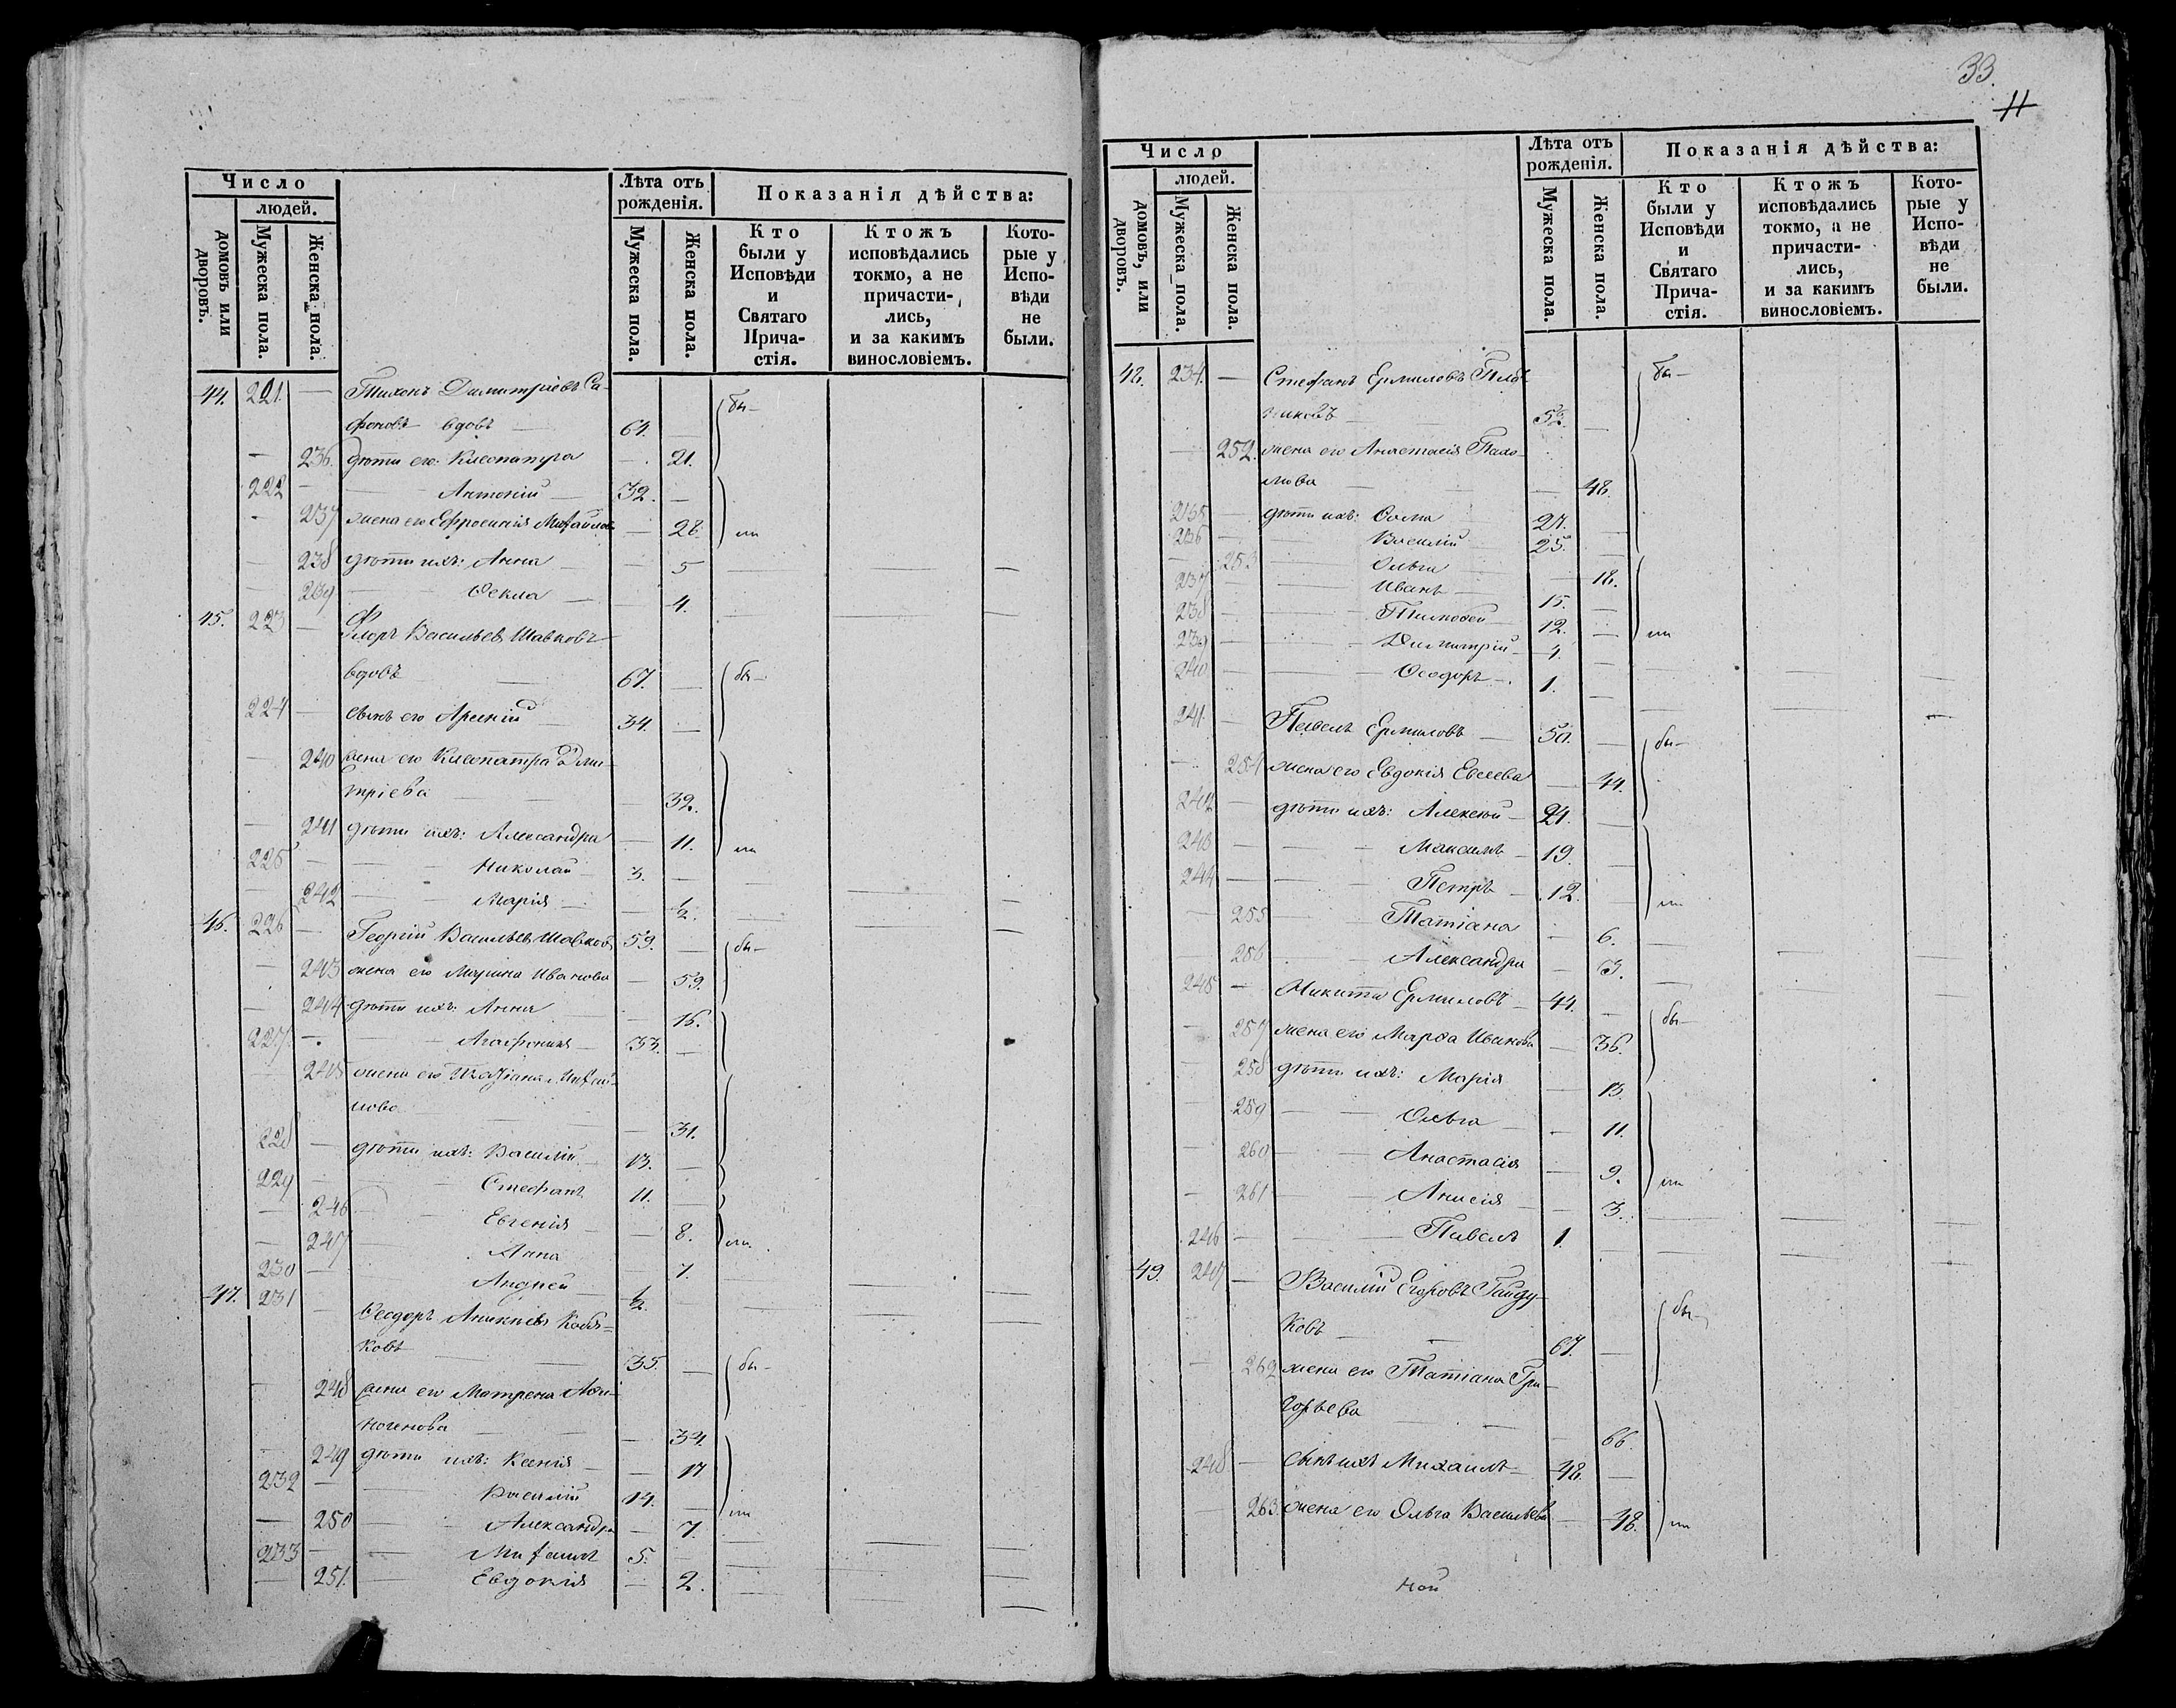 Число
людей.
домовъ или дворовъ.
Мужеска пола.
Женска пола.
Лѣта отъ рожденія.
Мужеска пола.
Женска пола.
Показанія дѣйства:
Кто были у Исповѣди и Святаго Прича-стія.
Ктожъ исповѣдались токмо, а не причасти-лись, и за какимъ винословіемъ.
Кото-рые у Испо-вѣди не были.
44. 221. — Тихонъ Димитріевъ Са-
фоновъ вдовъ — 64. — бы—
— 236. дѣти его: Клеопатра — 21.
222 — Антоній — 32. —
— 237 жена его Ефросинія Михайлов — 28. ли
— 238 дѣти ихъ: Анна — 5 — — —
— 239 — Ѳекла — 4. — — —
45. 223 — Флоръ Васильевъ Шавковъ
вдовъ — 67. — бы—
224 — сынъ его Арсеній — 34. —
— 240 жена его Клеопатра Дми-
тріева — 32.
— 241 дѣти ихъ: Александра — 11. ли
225 — Николай 3. — — —
— 242 — Марія — 1/2. — — —
46. 226 — Георгій Васильевъ Шавковъ 59. — бы—
— 243 жена его Марина Иванова — 59.
— 244 дѣти ихъ: Анна — 16.
227 — Агафоникъ — 33. —
— 245 жена его
лова — 31.
228 — дѣти ихъ: Василій — 13. —
229 — Стефанъ 11. —
— 246 — Евгенія — 8. ли
— 247 — Анна — 7. —
230 — Андрей — 1/2. — — —
47. 231 — Ѳеодоръ Аникіевъ Кобя-
ковъ — 35. — бы—
— 248 жена его Матрена Аѳи-
ногенова — 34.
— 249 дѣти ихъ: Ксенія — 17
232 — Василій 14. — ли
— 250 — Александра — 7. —
233 — Михаилъ 5. — —
— 251. — Евдокія — 2. — —
33.
11
Число
людей.
домовъ, или дворовъ.
Мужеска пола.
Женска пола.
Лѣта отъ рожденія.
Мужеска пола.
Женска пола.
Показанія дѣйства:
Кто были у Исповѣди и Святаго Прича-стія.
Ктожъ исповѣдались токмо, а не причасти-лись, и за какимъ винословіемъ.
Кото-рые у Испо-вѣди не были.
48. 234. — Стефанъ Ермиловъ
— 52. — бы—
— 252. жена его Анастасія
— 48.
235 — дѣти ихъ: Ѳома 27. —
236 — Василій 25. —
— 253 — Ольга — 18.
237 — Иванъ 15. —
238 — Тимоѳей 12. — ли
239 — Димитрій — 4. — — —
240 — Ѳеодоръ — 1. — — —
241 — Павелъ Ермиловъ — 50. — бы—
— 254 жена его Евдокія Евсеева — 44.
242 — дѣти ихъ: Алексѣй — 21. —
243 — Максимъ — 19. —
244 — Петръ — 12. — ли
— 255 — Татіана — 6. — — —
— 256 — Александра — 3. — — —
245 — Никита Ермиловъ — 44. — бы—
— 257 жена его Марѳа Иванова — 36.
— 258 дѣти ихъ: Марія — 13.
— 259 — Ольга — 11.
— 260 — Анастасія — 9. ли
— 261 — Анисія — 3. — — —
246 — Павелъ 1. — — —
49. 247 — Василій Егоровъ Гайду-
ковъ — 67. — бы—
— 262 жена его Татіана Гри-
горьева — 66.
248 — сынъ ихъ Михаилъ — 48. —
— 263. жена его Ольга Васильева — 48. ли
ной